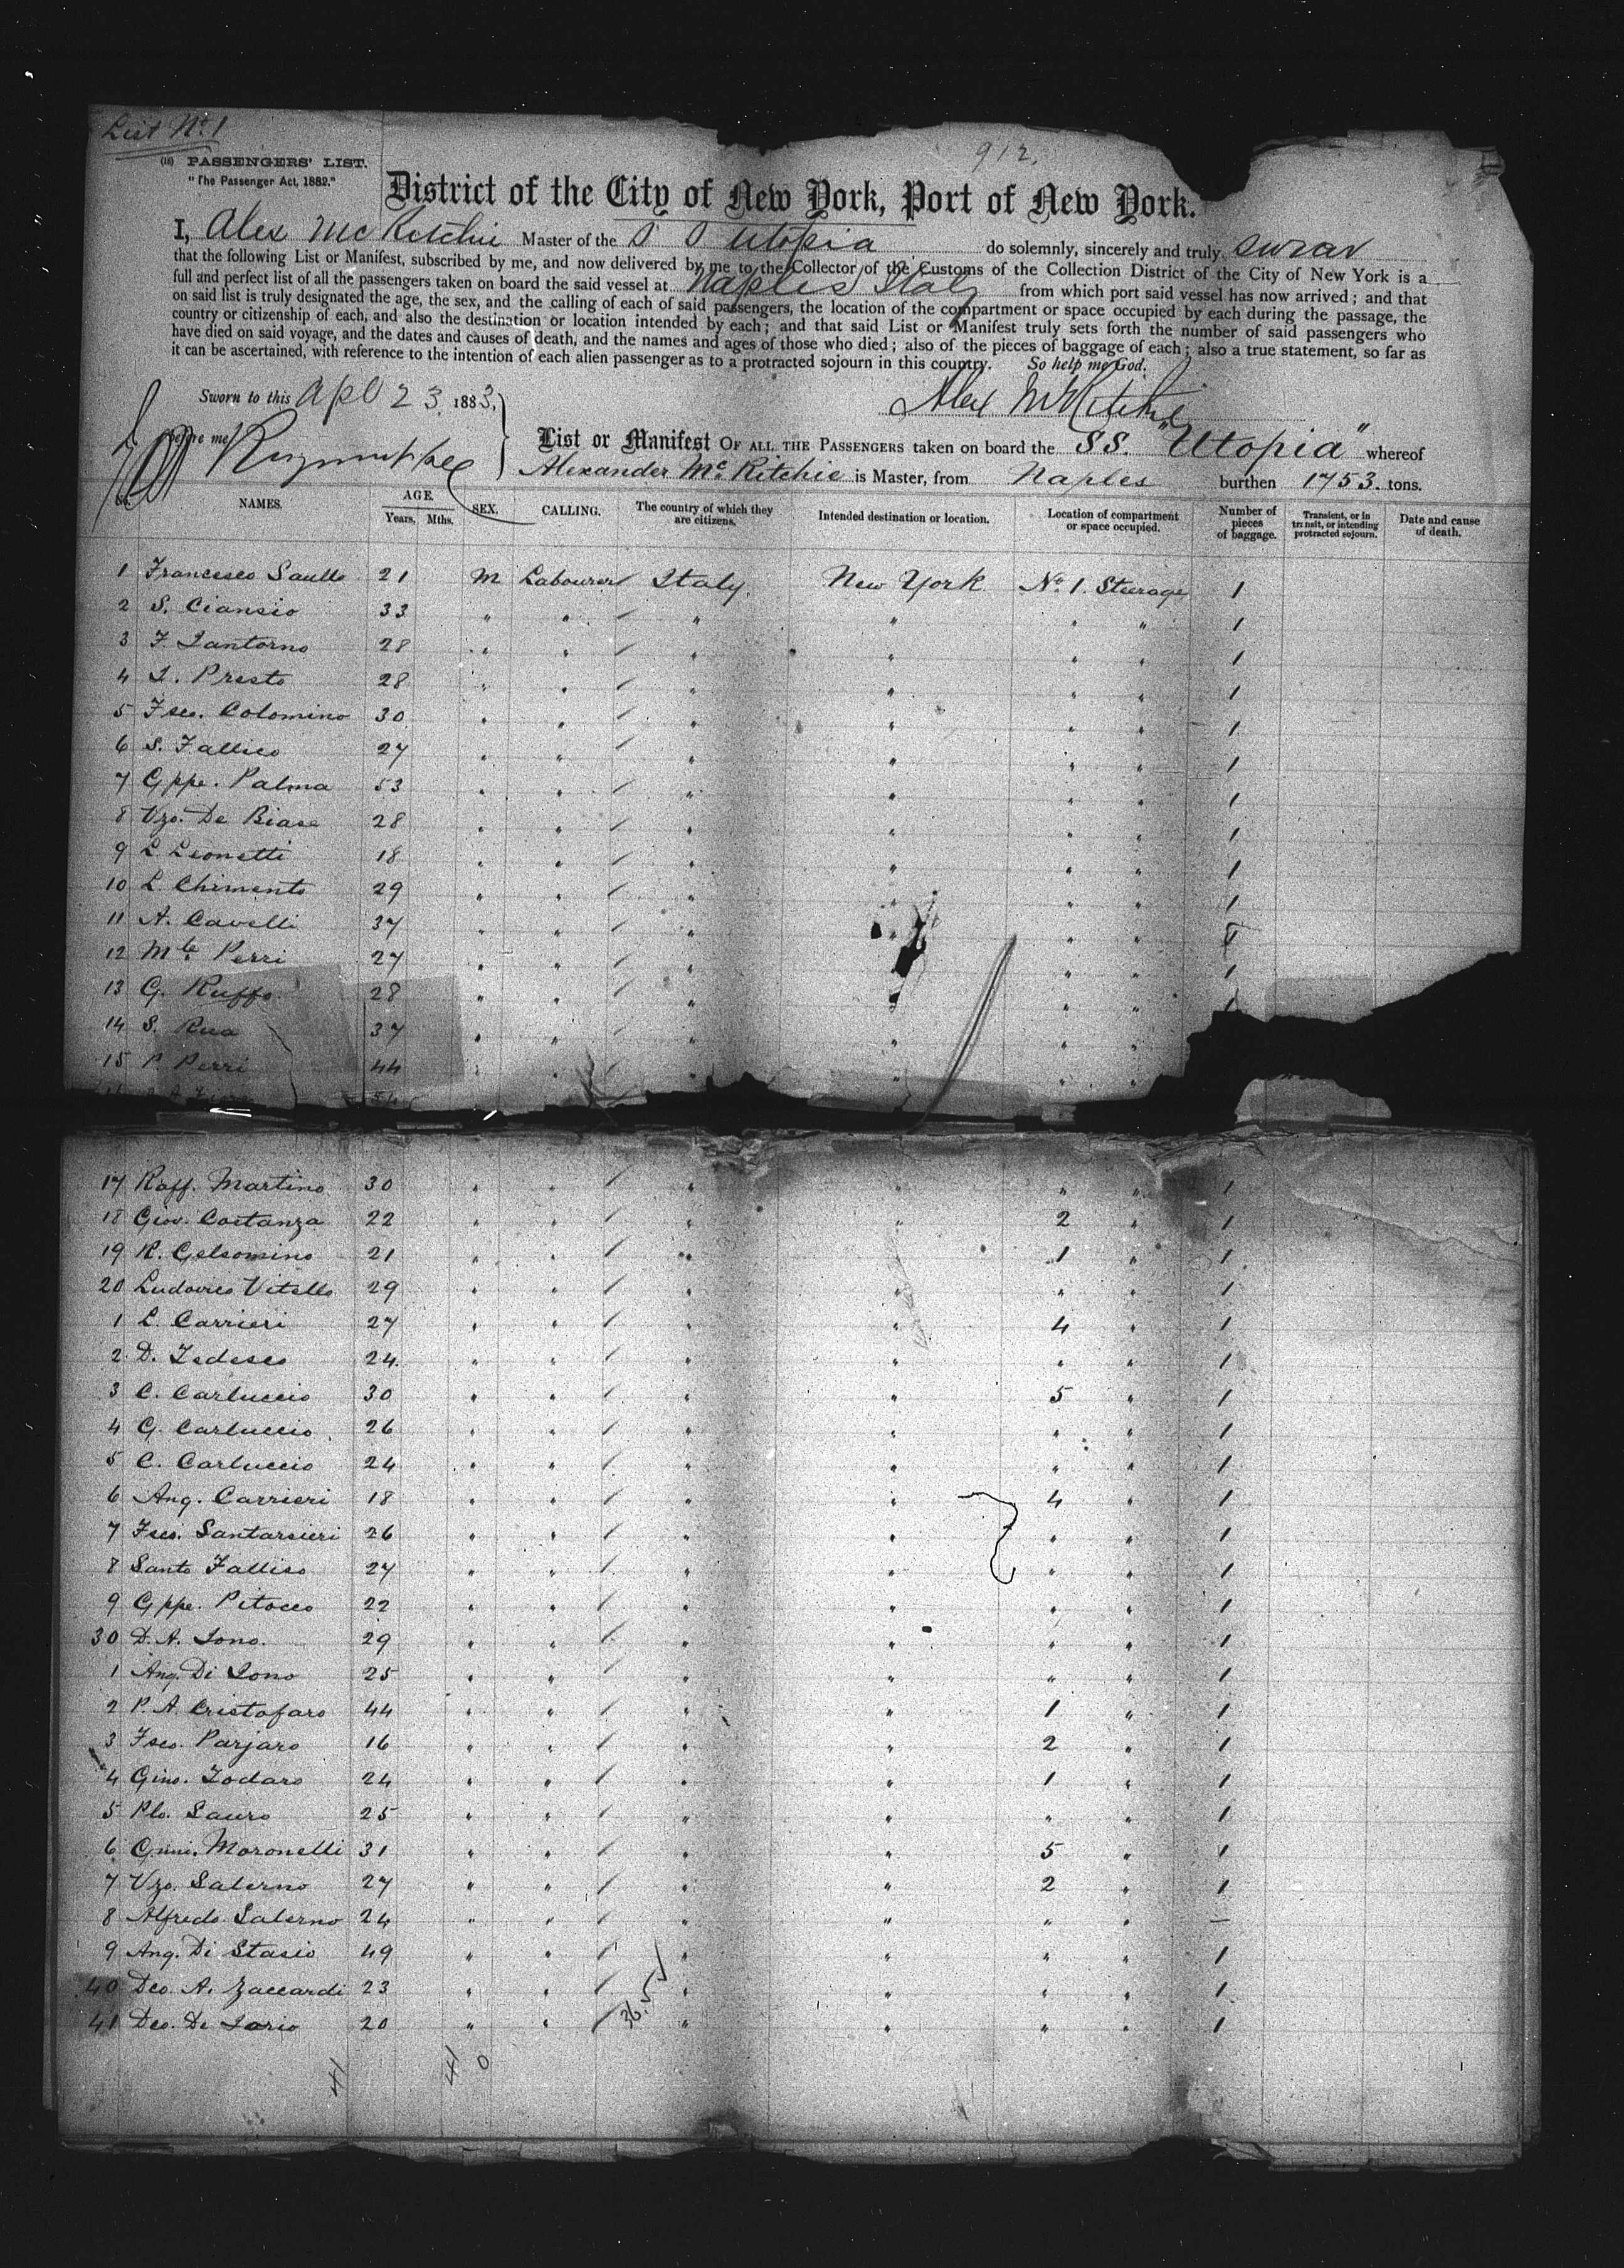 List No. 1
912.
(18) PASSENGERS' LIST.
"The Passenger Act, 1882."
District of the City of New York, Port of New York.
I, Alex McRitchie Master of the S S Utopia do solemnly, sincerely and truly swear
that the following List or Manifest, subscribed by me, and now delivered by me to the Collector of the Customs of the Collection District of the City of New York is a
full and perfect list of all the passengers taken on board the said vessel at Naples Italy from which port said vessel has now arrived; and that
on said list is truly designated the age, the sex, and the calling of each of said passengers, the location of the compartment or space occupied by each during the passage, the
country or citizenship of each, and also the destination or location intended by each; and that said List or Manifest truly sets forth the number of said passengers who
have died on said voyage, and the dates and causes of death, and the names and ages of those who died; also of the pieces of baggage of each; also a true statement, so far as
it can be ascertained, with reference to the intention of each alien passenger as to a protracted sojourn in this country. So help me God.
Sworn to this Apl 23 1883,
Alex McRitchie
before me
List or Manifest OF ALL THE PASSENGERS taken on board the SS. "Utopia" whereof
Alexander McRitchie is Master, from Naples burthen 1753. tons.
NAMES. AGE. Years. Mths. SEX. CALLING. The country of which they are citizens. Intended destination or location. Location of compartment or space occupied. Number of pieces of baggage. Transient, or in transit, or intending protracted sojourn. Date and cause of death.
1 Francesco Saullo 21 M Labourer Italy. New York No. 1. Steerage 1
2 S. Ciansio 33 " " " " " " 1
3 F. Santorno 28 " " " " " " 1
4 S. Presto 28 " " " " " " 1
5 Fsco. Colomino 30 " " " " " " 1
6 S. Fallico 27 " " " " " " 1
7 Gppe. Palma 53 " " " " " " 1
8 Vzo. De Biase 28 " " " " " " 1
9 L. Leonetti 18 " " " " " " 1
10 L. Chimento 29 " " " " " " 1
11 A. Cavelli 37 " " " " " " 1
12 Mle Perri 27 " " " " " 1
13 G. Ruffo 28 " " " " " " 1
14 S. Rua 37 " " " " " "
15 P. Perri 44 " " " " " "
17 Raff. Martino 30 " " " " " " 1
18 Giov. Costanza 22 " " " " 2 " 1
19 R. Gelsomino 21 " " " " 1 " 1
20 Ludovico Vitello 29 " " " " " " 1
1 L. Carrieri 27 " " " " 4 " 1
2 D. Tedesco 24 " " " " " " 1
3 C. Carluccio 30 " " " " 5 " 1
4 G. Carluccio 26 " " " " " " 1
5 C. Carluccio 24 " " " " " " 1
6 Ang. Carrieri 18 " " " " 4 " 1
7 Fsco. Santarsieri 26 " " " " " " 1
8 Santo Fallico 27 " " " " " " 1
9 Gppe. Pitocco 22 " " " " " " 1
30 D. A. Iono. 29 " " " " " " 1
1 Ang. Di Iono 25 " " " " " " 1
2 P. A. Cristofaro 44 " " " " 1 " 1
3 Fsco. Parjaro 16 " " " " 2 " 1
4 Gino. Todaro 24 " " " " 1 " 1
5 Plo. Sauro 25 " " " " " " 1
6 Gnni. Moronelli 31 " " " " 5 " 1
7 Vzo. Salerno 27 " " " " 2 " 1
8 Alfredo Salerno 24 " " " " " " —
9 Ang. Di Stasio 49 " " " " " " 1
40 Dco. A. Zaccardi 23 " " " " " " 1
41 Dco. De Iorio 20 " " " " " " 1
36.5
41 41 0